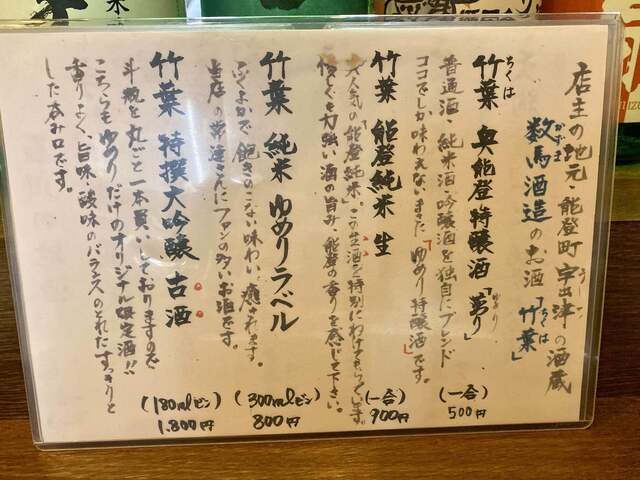 店主の地元・能登町宇出津の酒蔵
数馬酒造のお酒「竹葉」
竹葉 奥能登特醸酒「夢り」
普通酒・純米酒・吟醸酒を独自にブレンド
ココでしか味わえない、まさに「ゆめり特醸酒」です。
(一合)
500円
竹葉 能登純米 生
大人気の「能登純米」、この生酒を特別にわけてもらっています。
優しくも力強い酒の旨み、能登の香りを感じて下さい。
(一合)
900円
竹葉 純米 ゆめりラベル
ふくよかで、飽きのこない味わい、癒されます。
当店の常連さんにファンの多いお酒です。
(300mlビン)
800円
竹葉 特撰大吟醸 古酒
斗瓶を丸ごと一本買いしておりますので
こちらもゆめりだけのオリジナル限定酒!!
香りよく、旨味・酸味のバランスのとれたすっきりと
した呑み口です。
(180mlビン)
1,800円